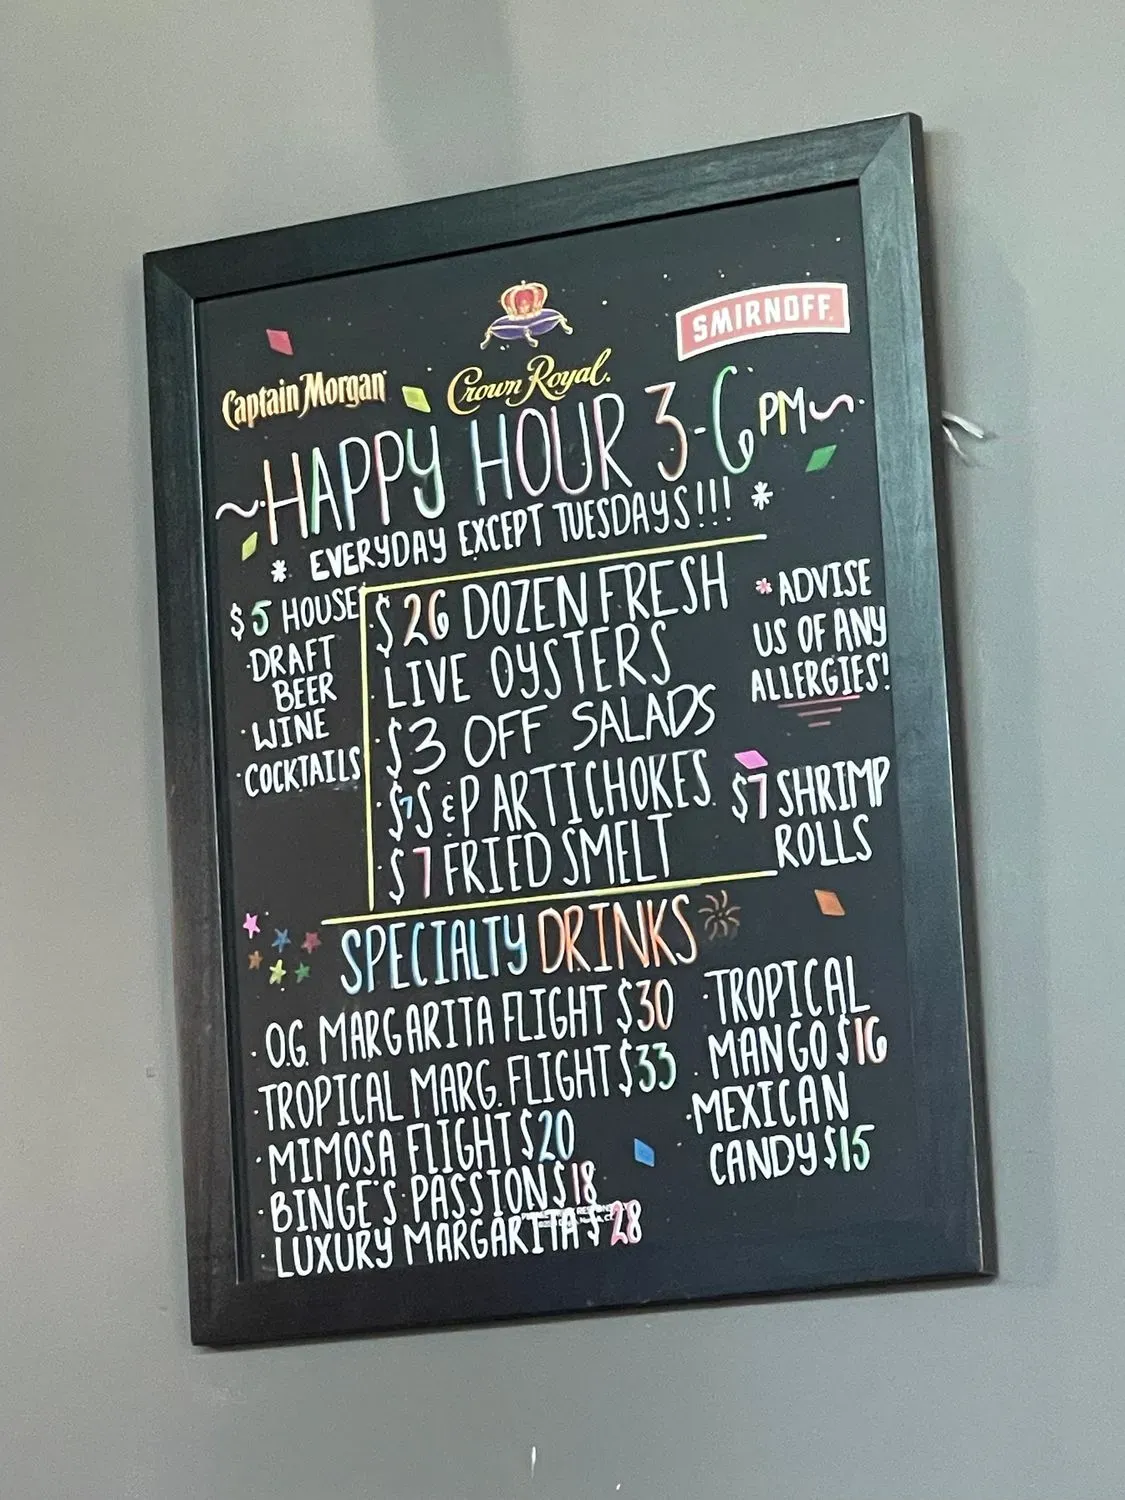 Captain Morgan
Crown Royal.
SMIRNOFF
~HAPPY HOUR 3-6 PM~
* EVERYDAY EXCEPT TUESDAYS!!! *
$5 HOUSE
·DRAFT
BEER
·WINE
·COCKTAILS
·$26 DOZEN FRESH
·LIVE OYSTERS
·$3 OFF SALADS
·$7 S&P ARTICHOKES
·$7 FRIED SMELT
*ADVISE
US OF ANY
ALLERGIES!
$7 SHRIMP
ROLLS
SPECIALTY DRINKS
·O.G. MARGARITA FLIGHT $30
·TROPICAL MARG. FLIGHT $33
·MIMOSA FLIGHT $20
·BINGE'S PASSION $18
·LUXURY MARGARITA $28
·TROPICAL
·MANGO $16
·MEXICAN
CANDY $15